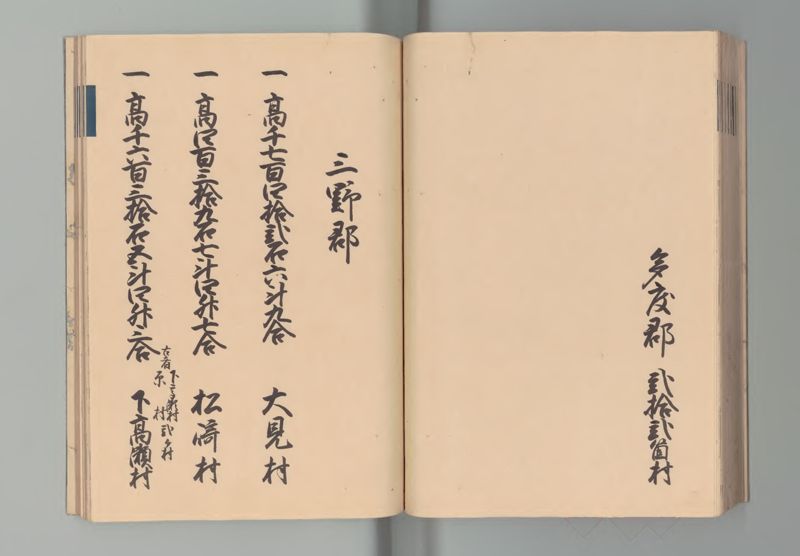 多度郡 弐拾弐箇村
三野郡
一 高千七百四拾弐石六斗九合 大見村
一 高四百三拾九石七斗四升七合 松崎村
一 高千六百三拾石五斗四升六合 下高瀬村
古者
原村
弐ケ村